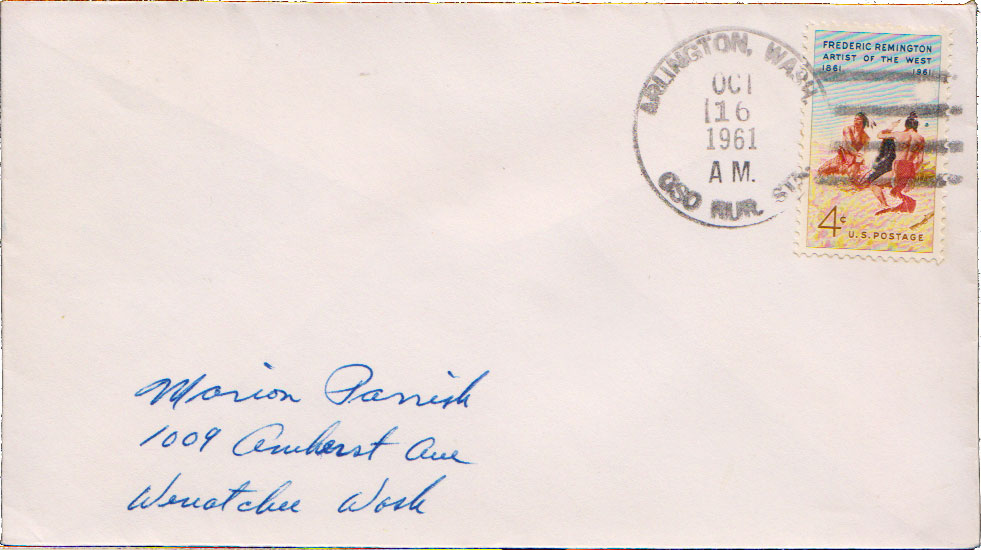 ARLINGTON, WASH.
OCT
16
1961
A M.
OSO RUR. STA.
FREDERIC REMINGTON
ARTIST OF THE WEST
1861 1961
4c
U.S. POSTAGE
Marion Parrish
1009 Amherst Ave
Wenatchee Wash